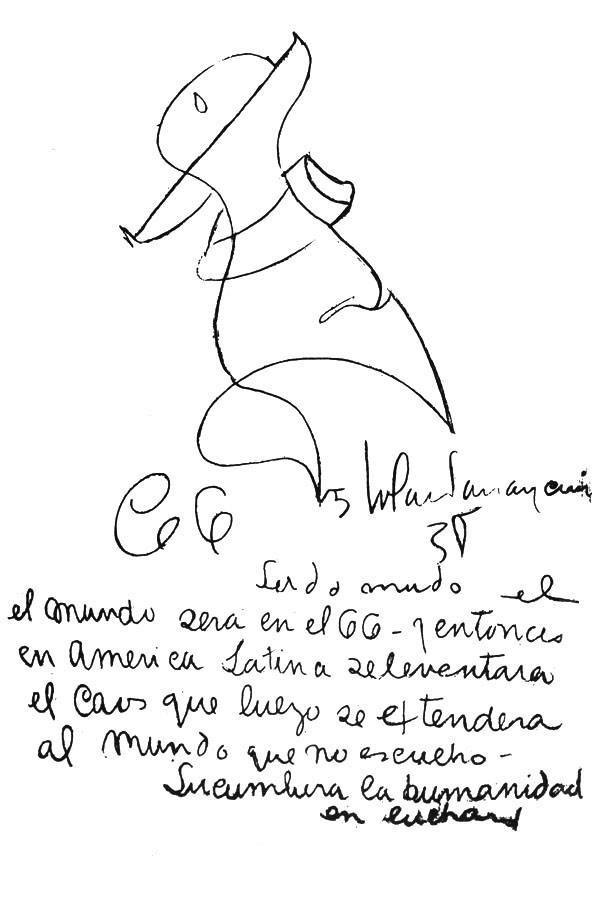 66
Solari Parravicini
38
Sordo mudo el
el mundo sera en el 66 - y entonces
en America Latina se leventara
el Caos que luego se extendera
al mundo que no escucho -
Sucumbira la humanidad
en luchas